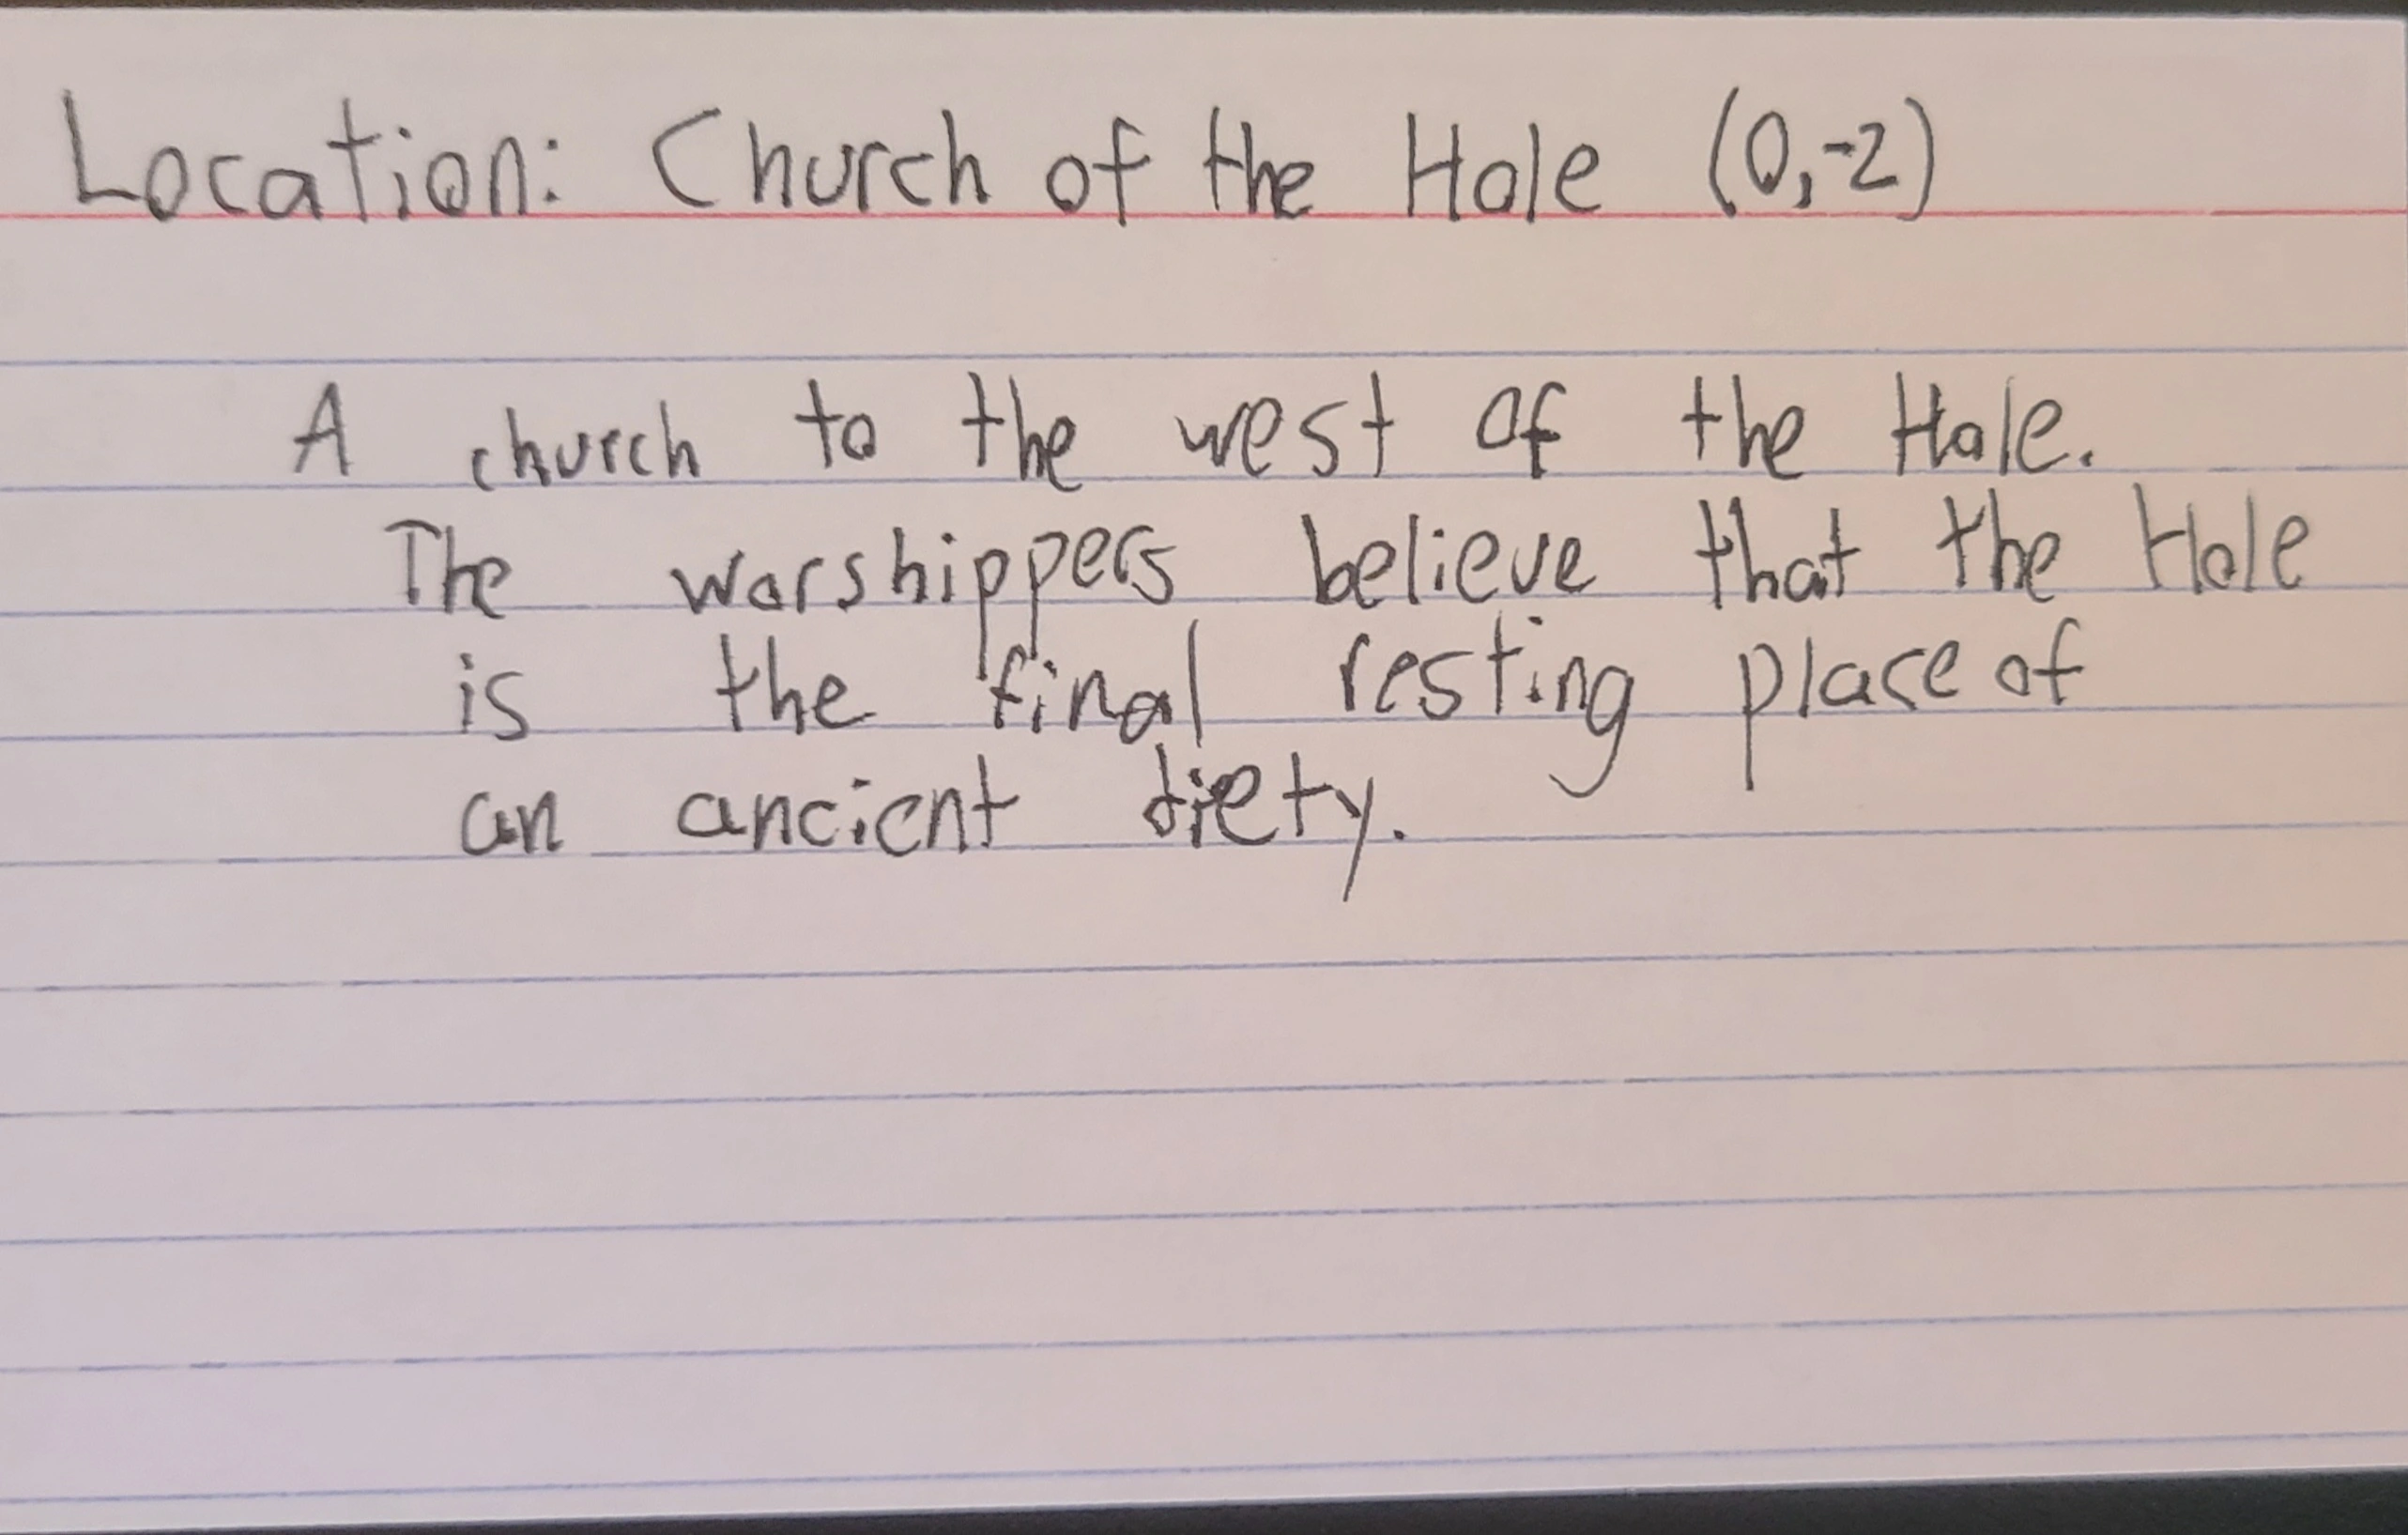 Location: Church of the Hole (0,-2)
A church to the west of the Hole.
The worshippers believe that the Hole
is the final resting place of
an ancient diety.